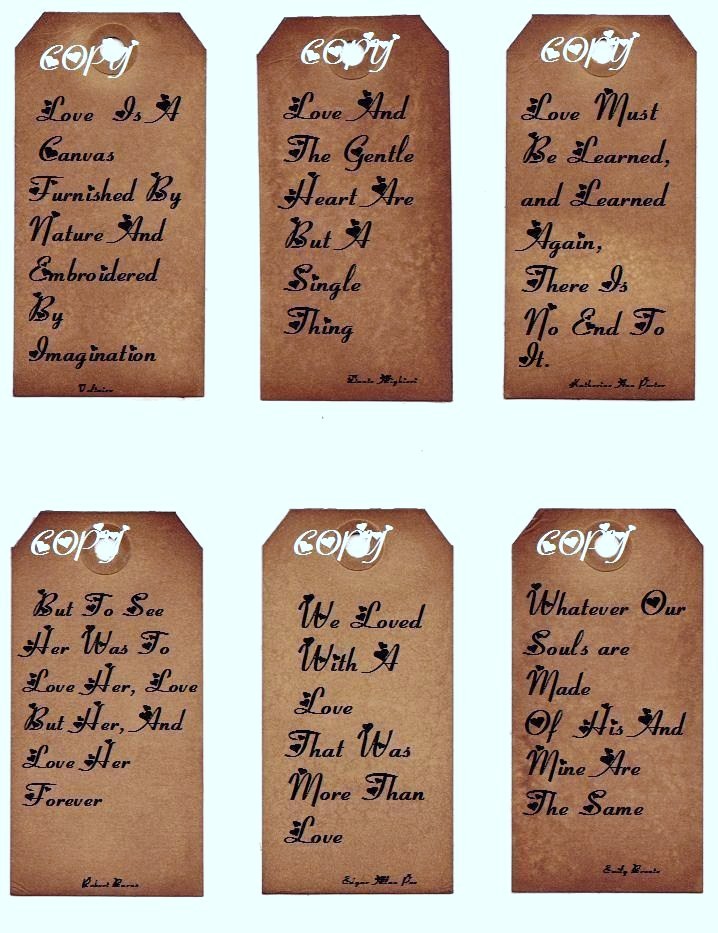 copy
Love Is A
Canvas
Furnished By
Nature And
Embroidered
By
Imagination
Voltaire
copy
Love And
The Gentle
Heart Are
But A
Single
Thing
Dante Alighieri
copy
Love Must
Be Learned,
and Learned
Again,
There Is
No End To
It.
Katherine Ann Porter
copy
But To See
Her Was To
Love Her, Love
But Her, And
Love Her
Forever
Robert Burns
copy
We Loved
With A
Love
That Was
More Than
Love
Edgar Allan Poe
copy
Whatever Our
Souls are
Made
Of His And
Mine Are
The Same
Emily Bronte